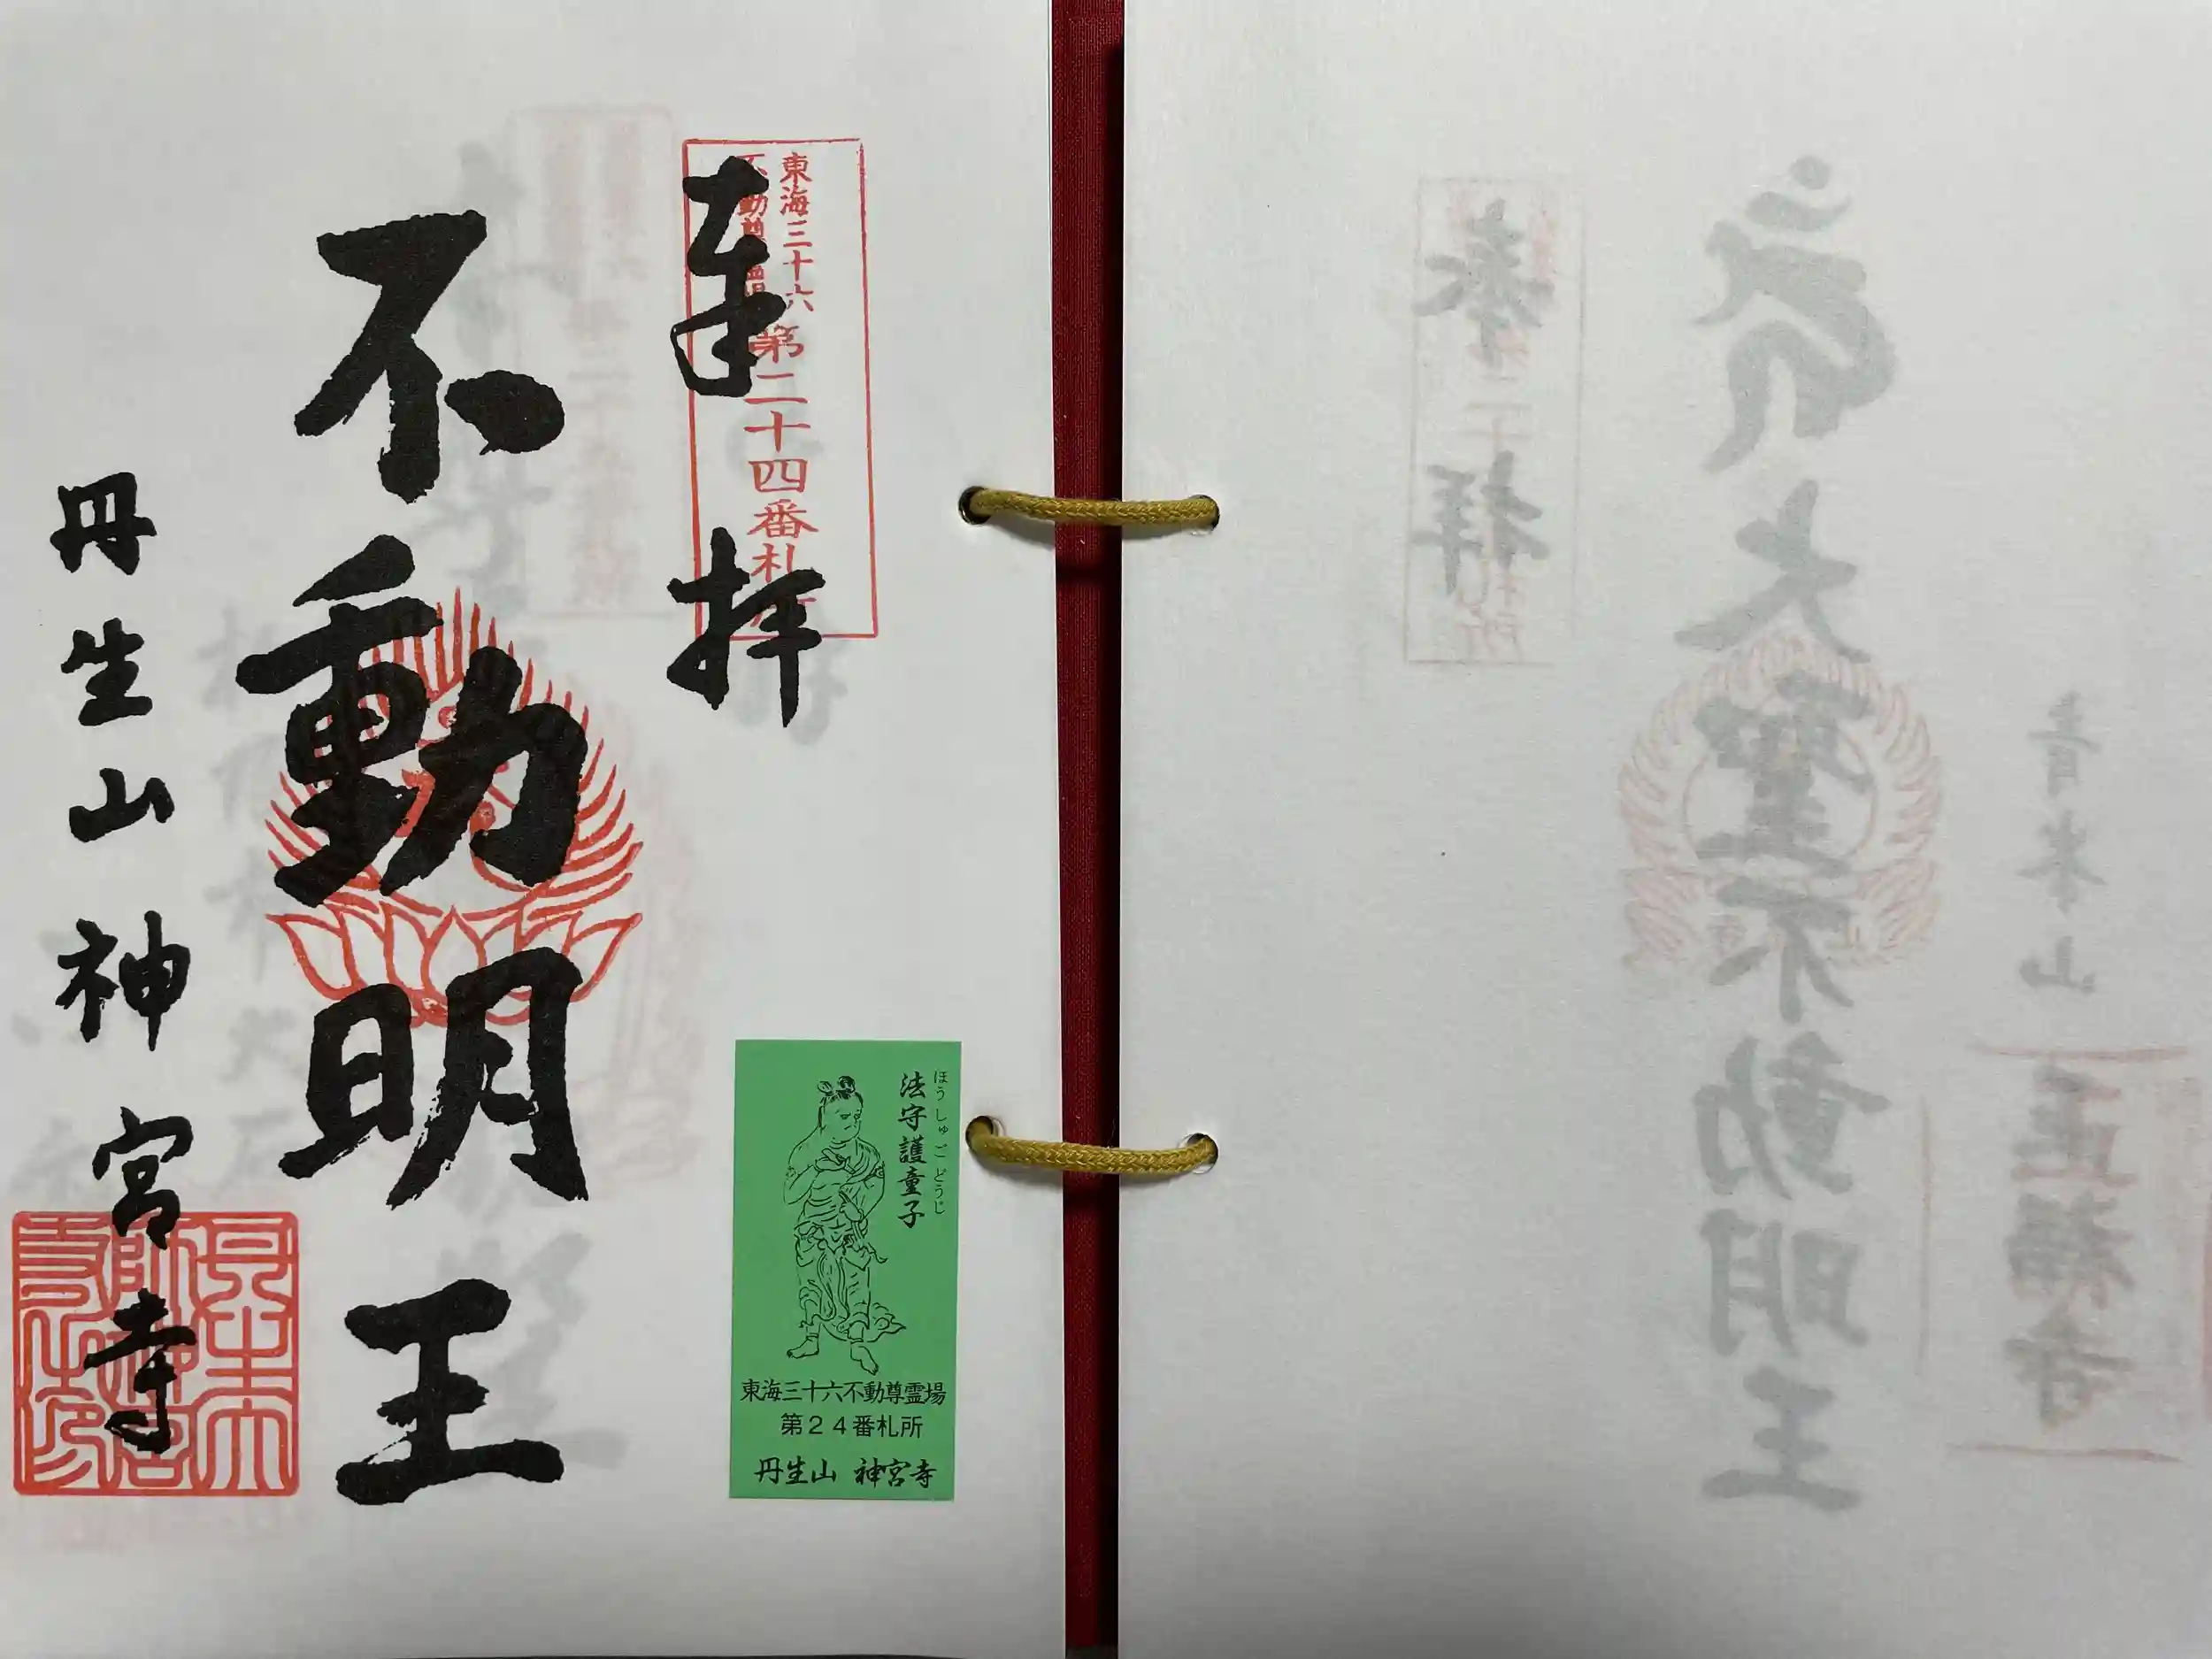 東海三十六
不動尊霊場
第二十四番札所
奉拝
不動明王
丹生山神宮寺
ほうしゅごどうじ
法守護童子
東海三十六不動尊霊場
第24番札所
丹生山 神宮寺